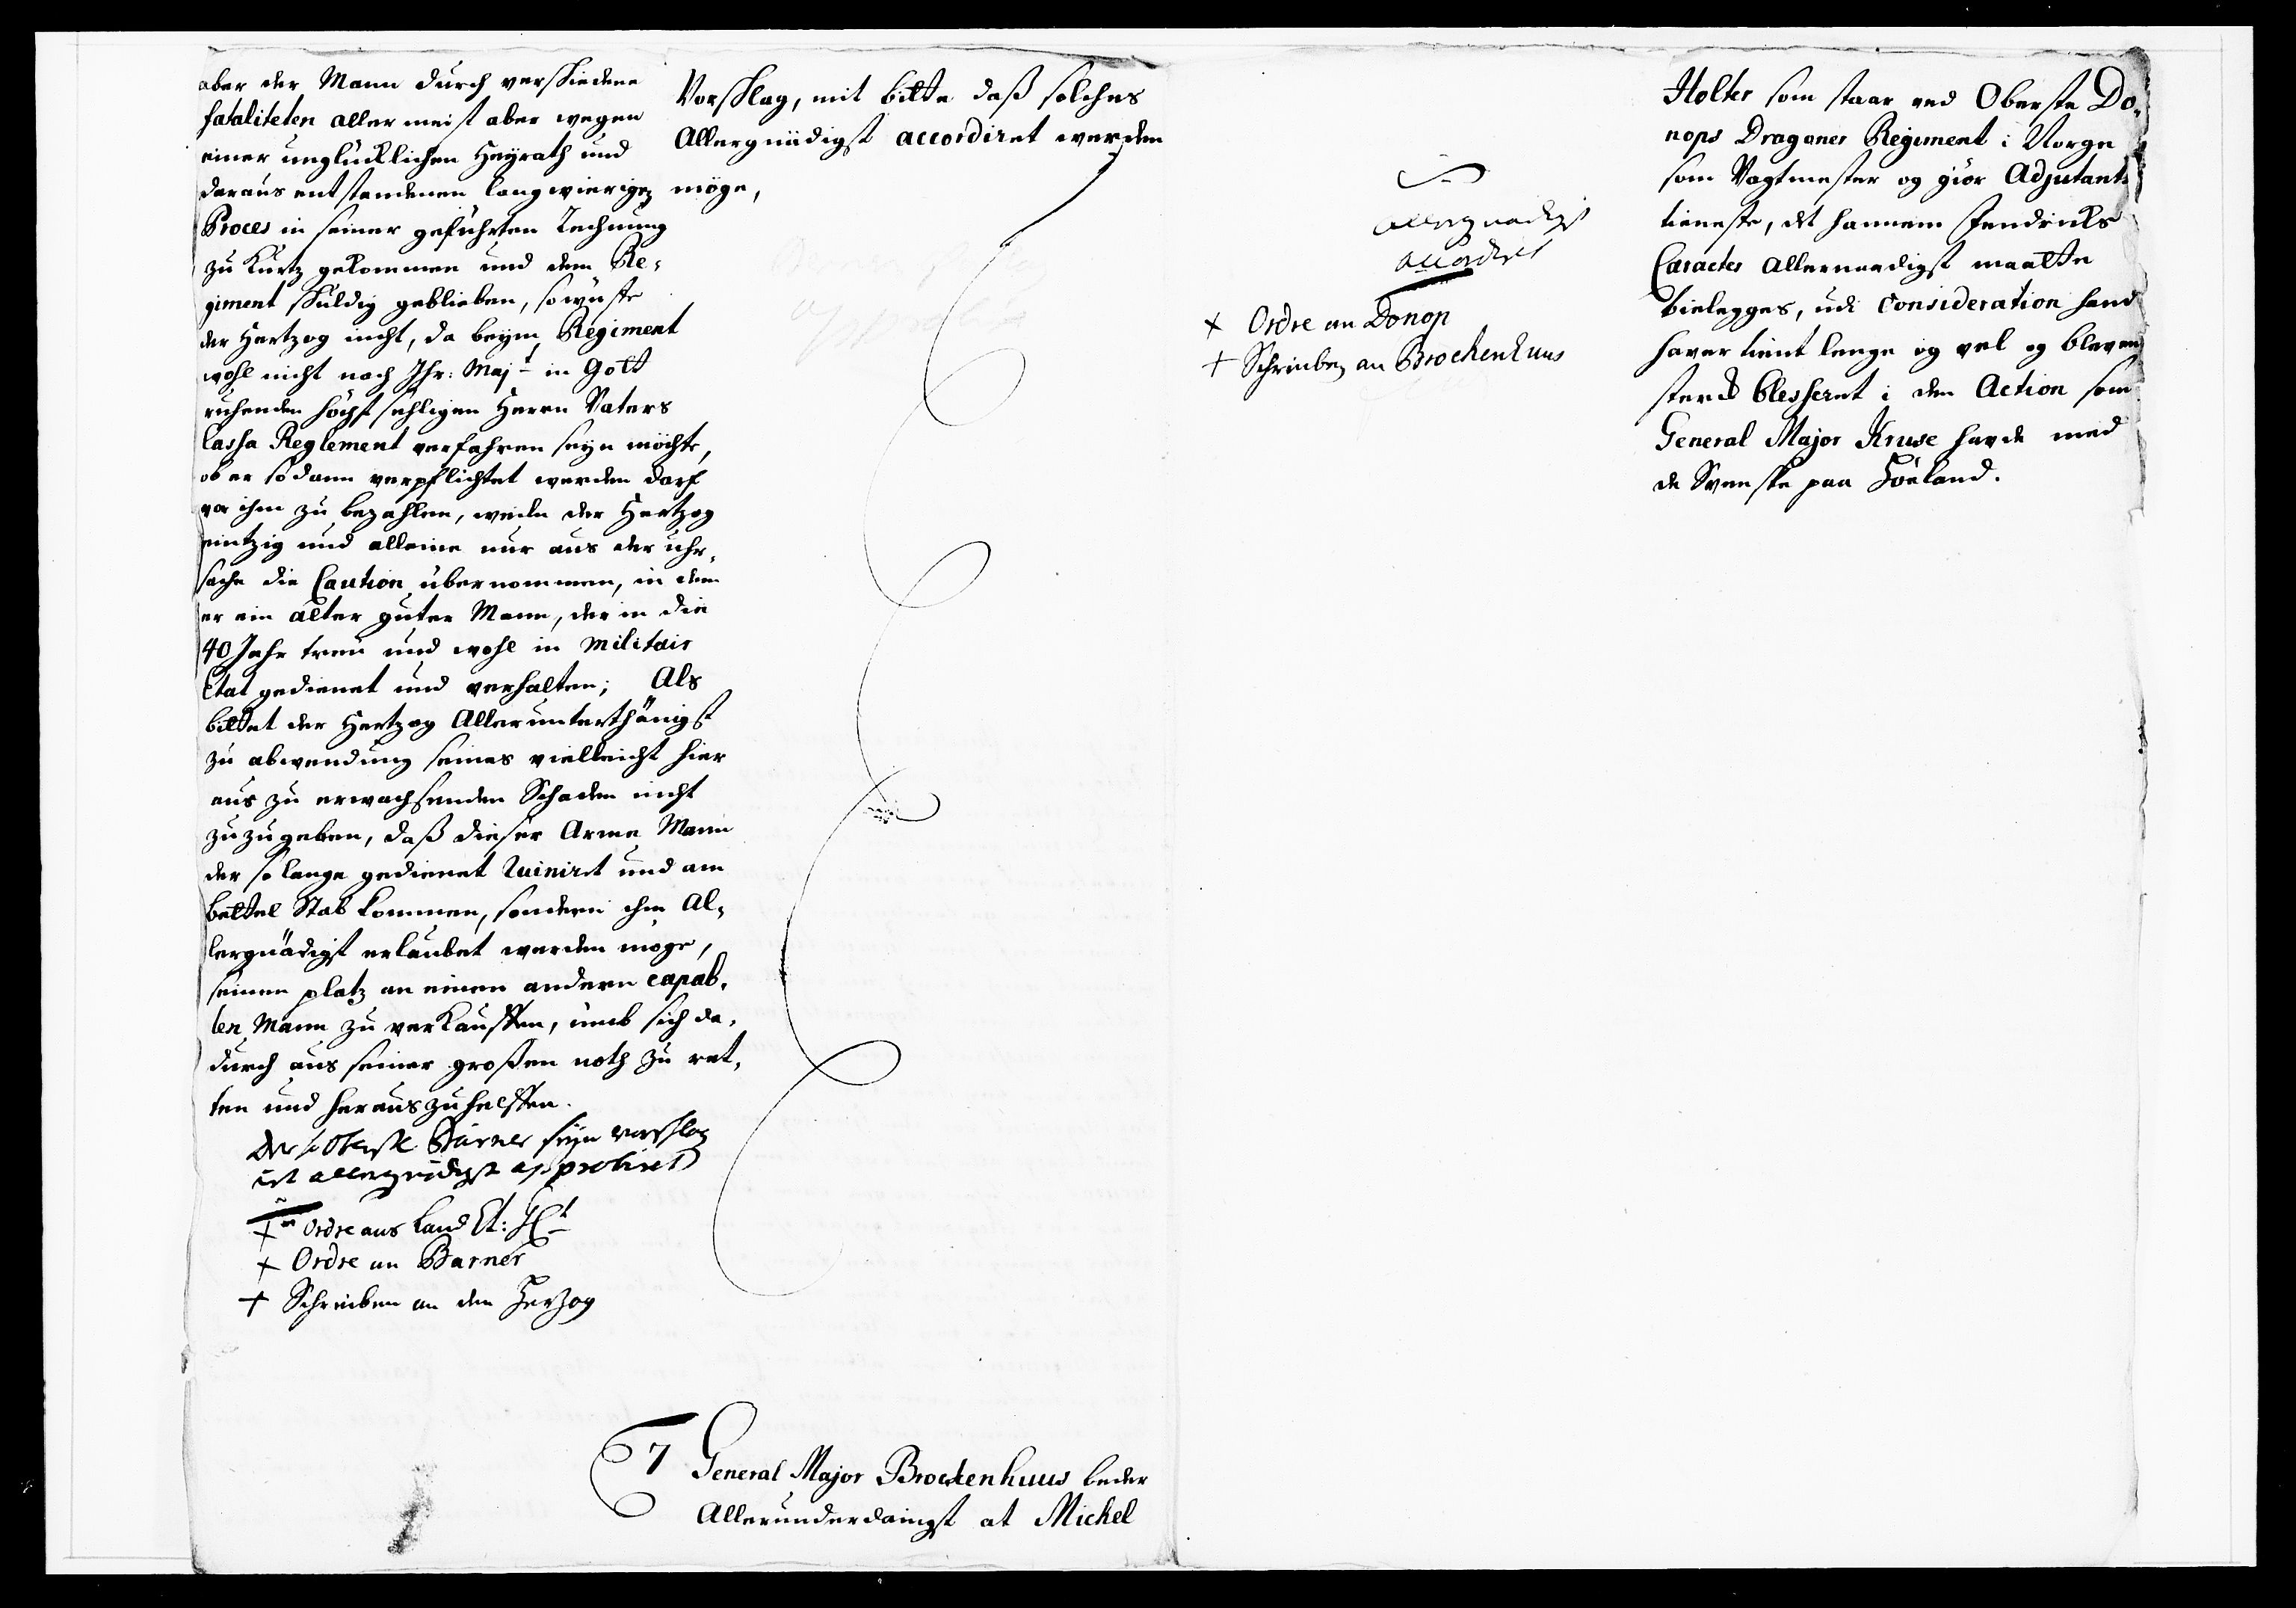 aber der Mann durch verschiedene
fataliteten aller meist aber wegen
einer unglücklichen Heÿrath und
daraus entstandenen langwierigen
Proces in seiner geführten Rechnung
zu Kurtz gekommen und dem Re-
giment schuldig geblieben, so wüste
der Hertzog nicht, da beÿm Regiment
wohl nicht nach Ihr: Majt in Gott
ruhenden höchst sehligen Herrn Vaters
Cassa Reglement verfahren seÿn möchte,
ob er sodann verpflichtet werden darf
vor ihm zu bezahlen, weiln der Hertzog
eintzig und alleine nur aus der uhr-
sache die Caution übernommen, in dem
er ein alter guter Mann, der in die
40 Jahr treu und wohl in Militair
Etat gedienet und verhalten; Als
bittet der Hertzog Allerunterthänigst
zu abwendung seines vielleicht hier
aus zu erwachsenden Schaden nicht
zuzugeben, daß dieser Arme Mann
der so lange gedienet Ruiniret und am
bettel Stab kommen, sondern ihm Al-
lergnädigst erlaubet werden möge,
seinen platz an einen andern capab-
len Mann zu verkauffen, umb sich da-
durch aus seiner großen noth zu ret-
ten und herauszuhelffen.
der Oberste Barner seÿn vorschlag
ist allergnädigst approbiret
+ Ordre ans Land Et: Gt
+ Ordre an Barner
+ Schreiben an den Herzog
Vorschlag, mit bitte daß solches
Allergnädigst accordiret werden
möge,
7 General Major Brockenhuus beder
Allerunderdanigst at Michel
allergnädigst
accordiret
+ Ordre an Donop
+ Schreiben an Brockenhuus
Holter som staar ved Oberste Do-
nops Dragoner Regiment i Norge
som Vagtmester og giör Adjutants
tieneste, det hannem Fendricks
Caracter Allernaadigst maatte
bielegges, udi Consideration hand
haver tient lenge og vel og bleven
sterck blesseret i den Action som
General Major Kruse havde med
de Svenske paa Höeland.